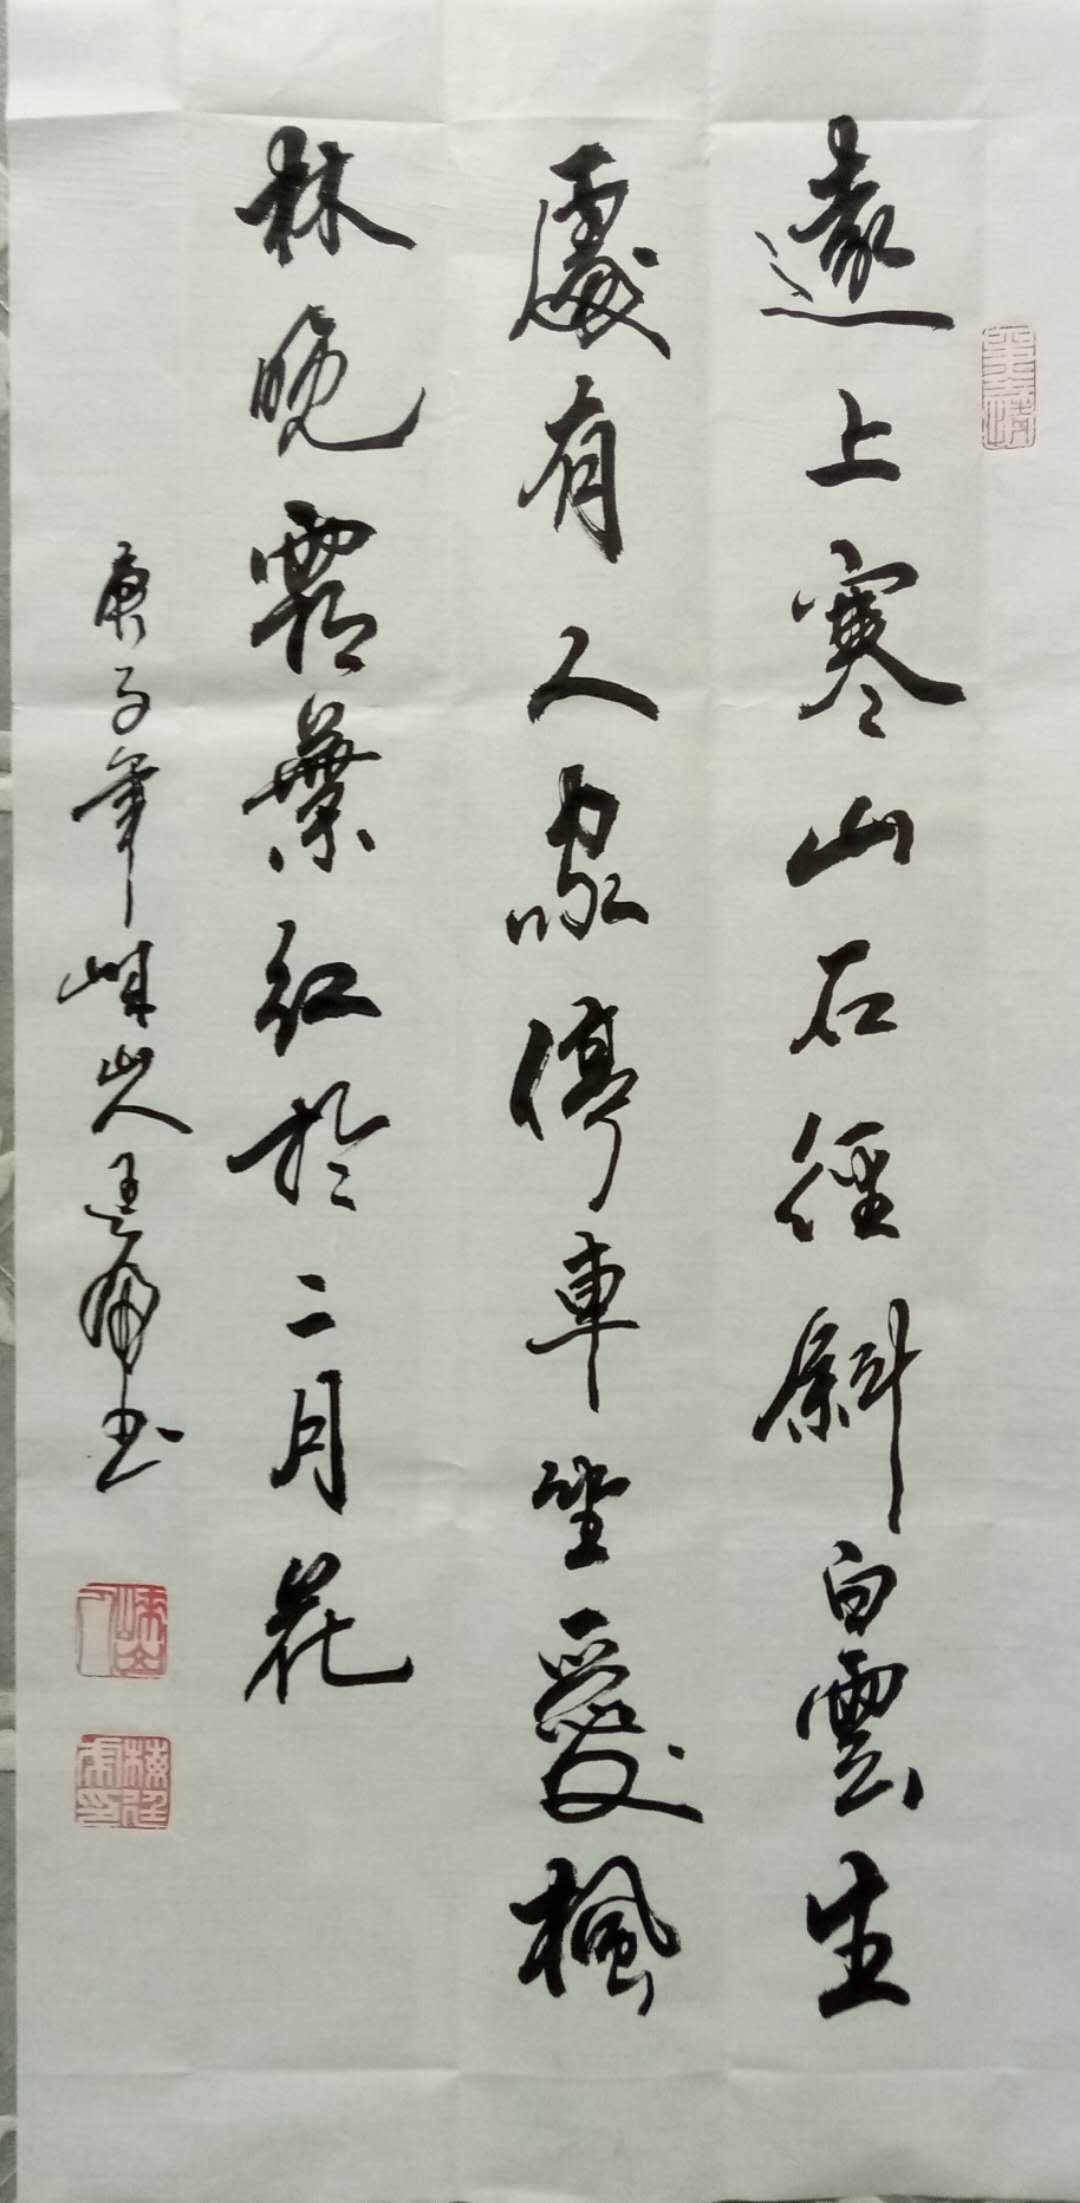 遠上寒山石徑斜白雲生
處有人家停車坐愛楓
林晚霜葉紅於二月花
庚子年嵊山人廷虎书